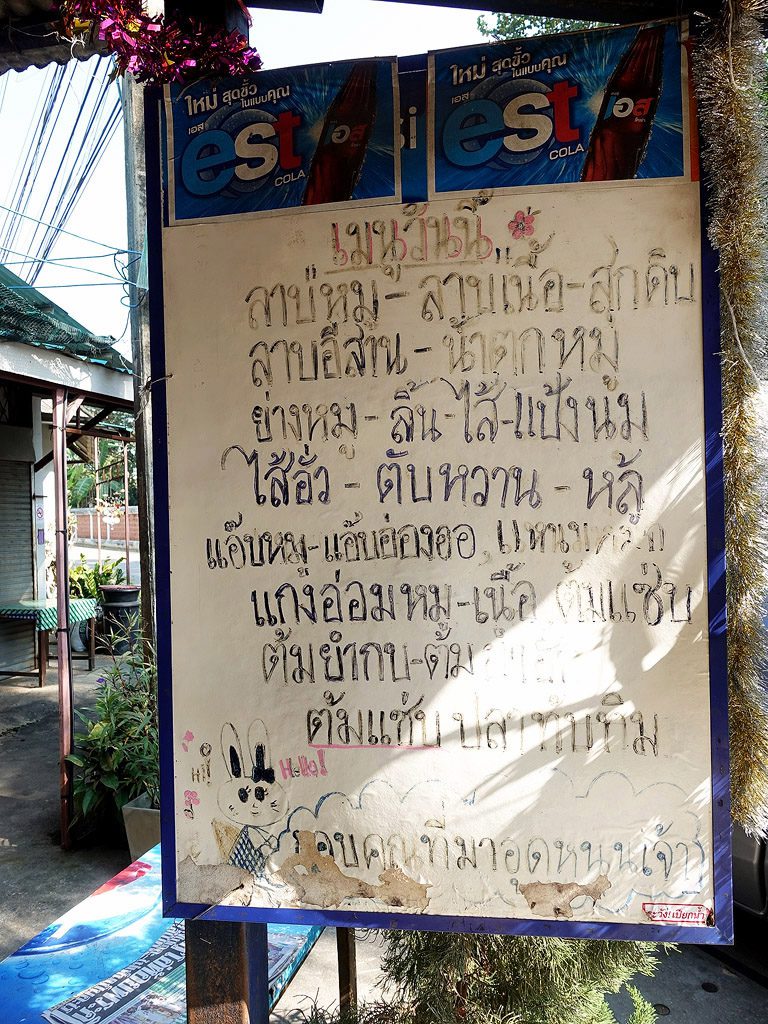 ใหม่ สุดขั้ว
ในแบบคุณ
เอส
est
COLA
เอส
ใหม่ สุดขั้ว
ในแบบคุณ
เอส
est
COLA
เอส
si
เมนูวันนี้
ลาบหมู - ลาบเนื้อ - สุกดิบ
ลาบอีสาน - น้ำตกหมู
ย่างหมู - ลิ้น - ไส้ - แป้งนม
ไส้อั่ว - ตับหวาน - หลู้
แอ๊บหมู - แอ๊บอ่องออ,
แกงอ่อมหมู - เนื้อ, ต้มแซ่บ
ต้มยำกบ - ต้ม
ต้มแซ่บ ปลาทับทิม
Hi! Hello!
ขอบคุณที่มาอุดหนุนเจ้า
ระวัง! เปียกน้ำ